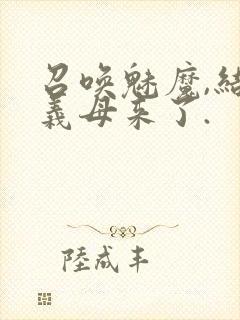 召喚魅魔,結
義母来了.
陸成丰